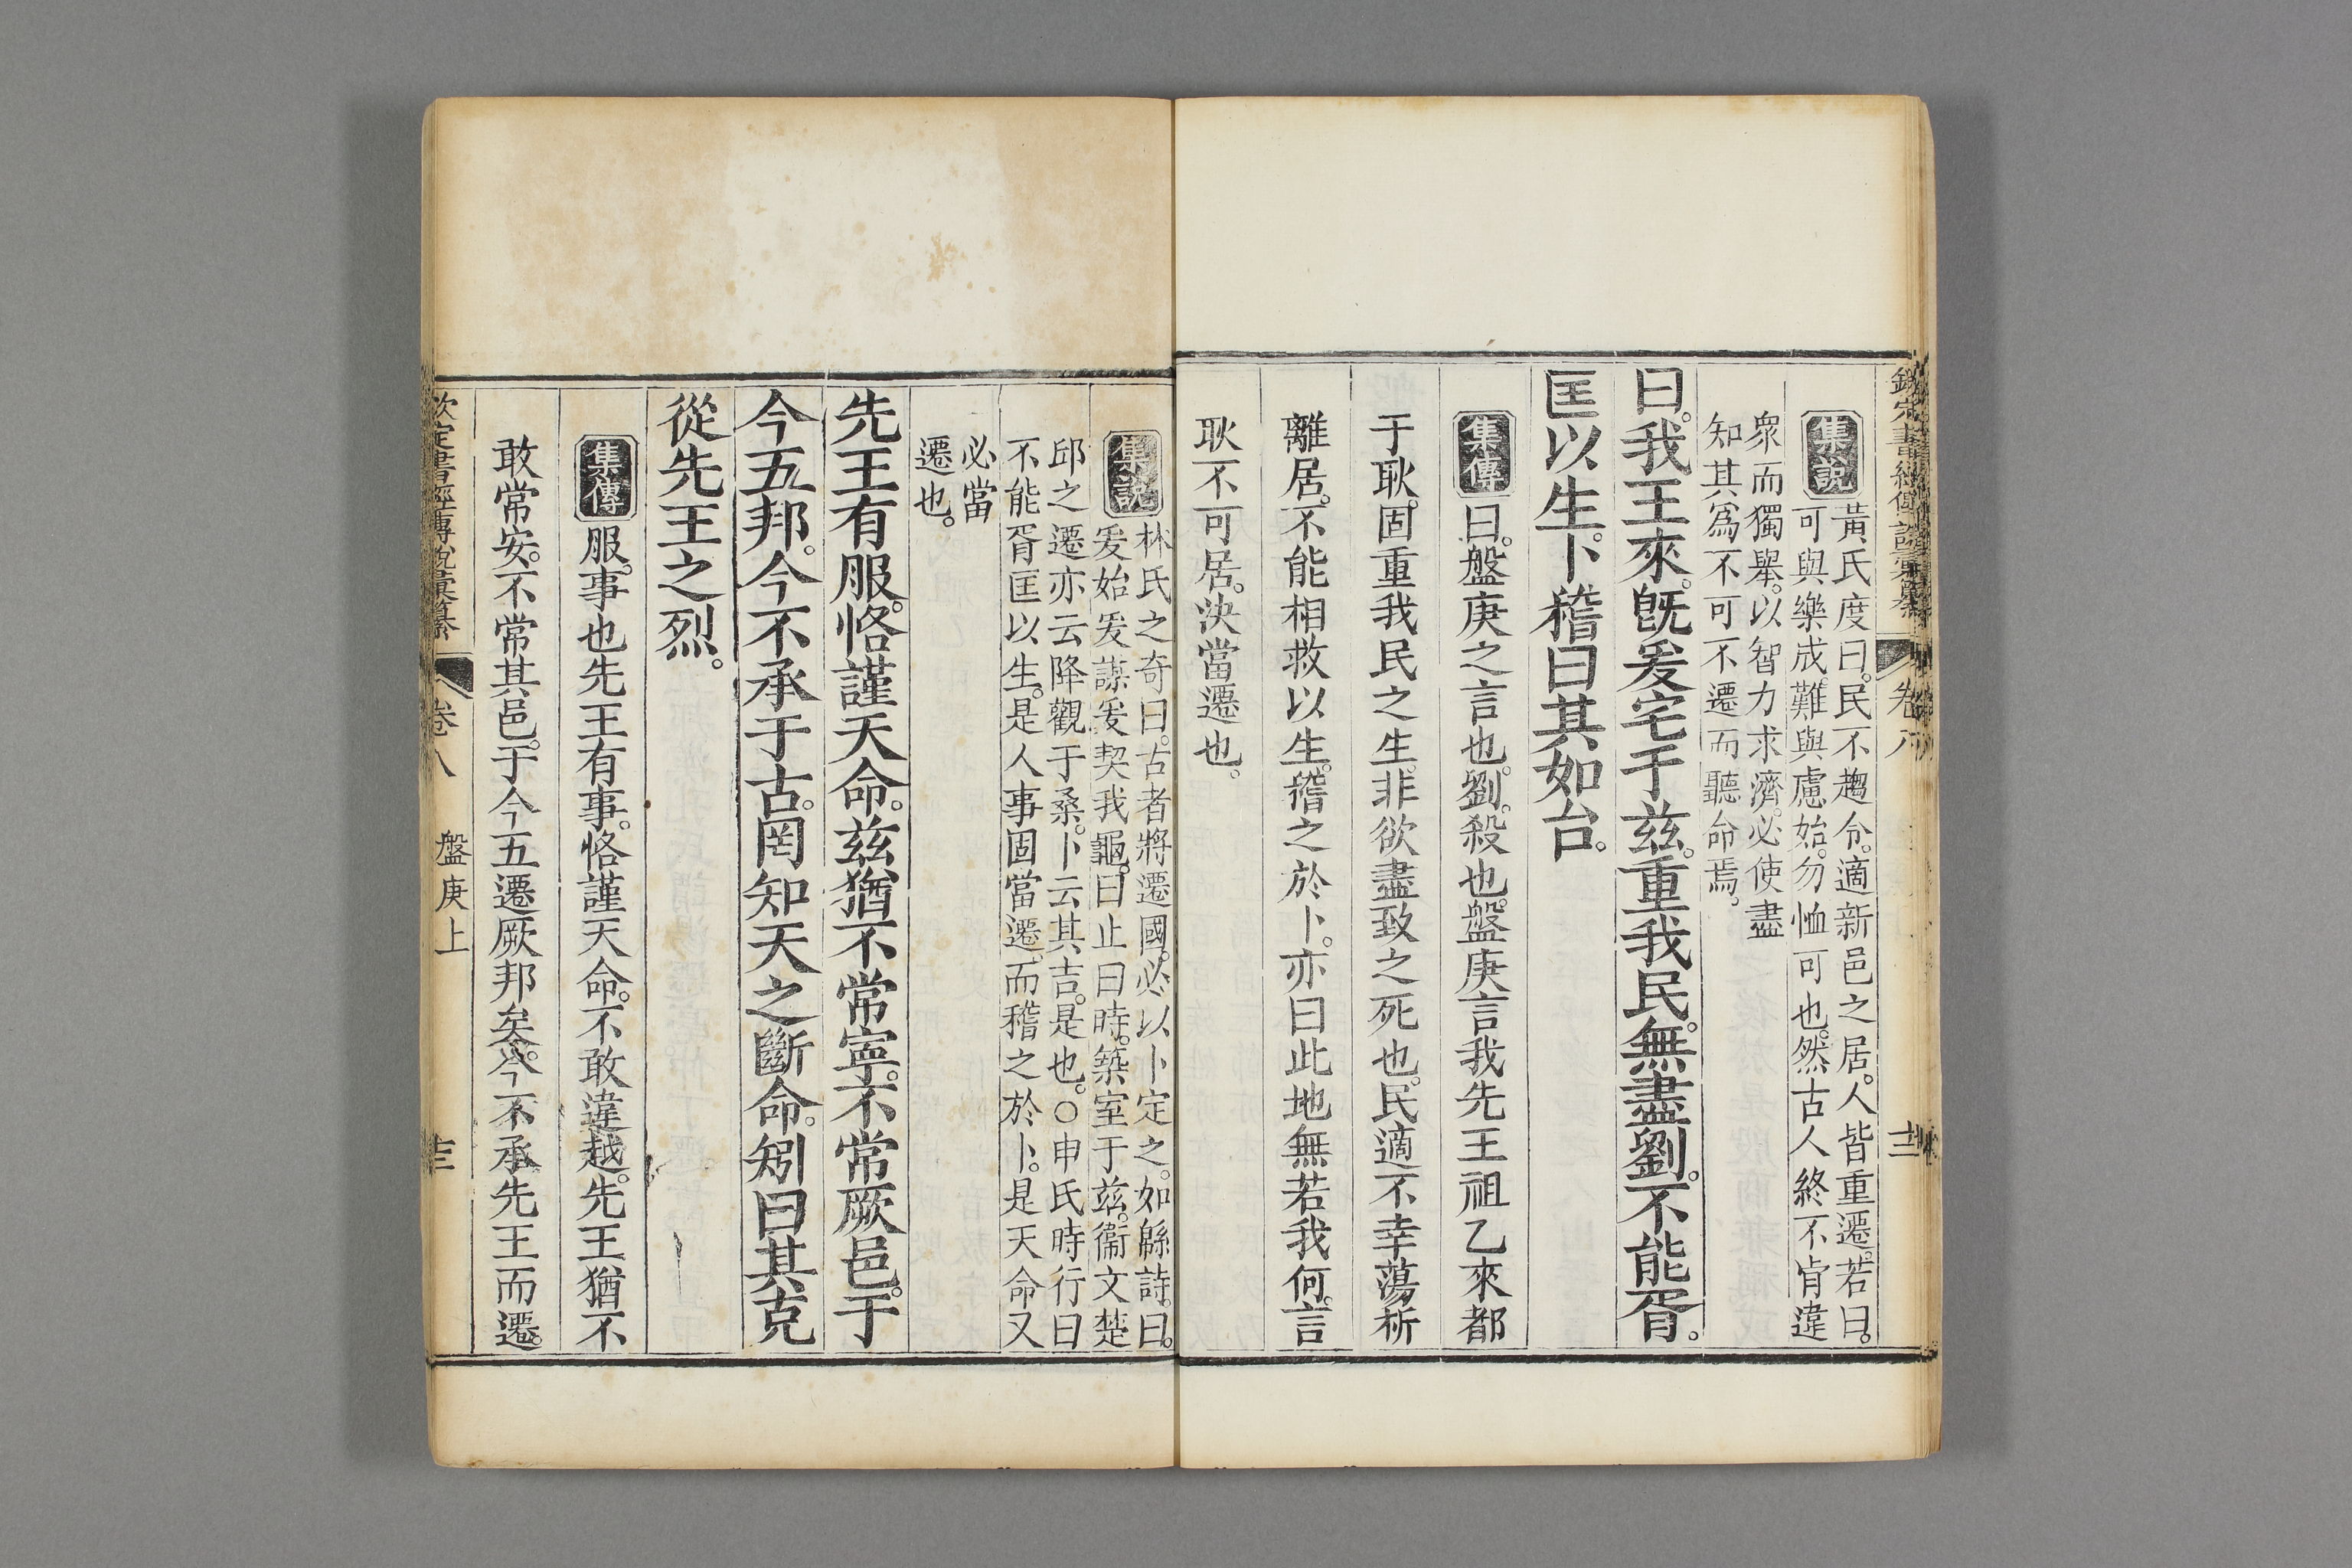 欽定書經傳說彙纂 卷八
集說 黃氏度曰。民不趨令。適新邑之居。人皆重遷。若曰。
可與樂成。難與慮始。勿恤可也。然古人終不肯違
衆而獨舉。以智力求濟。必使盡
知其爲不可不遷。而聽命焉。
曰。我王來。旣爰宅于茲。重我民。無盡劉。不能胥
匡以生。卜稽曰其如台。
集傳 曰。盤庚之言也。劉。殺也。盤庚言我先王祖乙來都
于耿。固重我民之生。非欲盡致之死也。民適不幸蕩析
離居。不能相救以生。稽之於卜。亦曰此地無若我何。言
耿不可居。決當遷也。
集說 林氏之奇曰。古者將遷國。必以卜定之。如緜詩。曰。
爰始爰謀。爰契我龜。曰止曰時。築室于茲。衞文楚
邱之遷。亦云降觀于桑。卜云其吉。是也。○申氏時行曰
不能胥匡以生。是人事固當遷。而稽之於卜。是天命又
必當
遷也。
先王有服。恪謹天命。茲猶不常寧。不常厥邑。于
今五邦。今不承于古。罔知天之斷命。矧曰其克
從先王之烈。
集傳 服。事也。先王有事。恪謹天命。不敢違越。先王猶不
敢常安。不常其邑。于今五遷厥邦矣。今不承先王而遷。
欽定書經傳說彙纂 卷八 盤庚上 十三